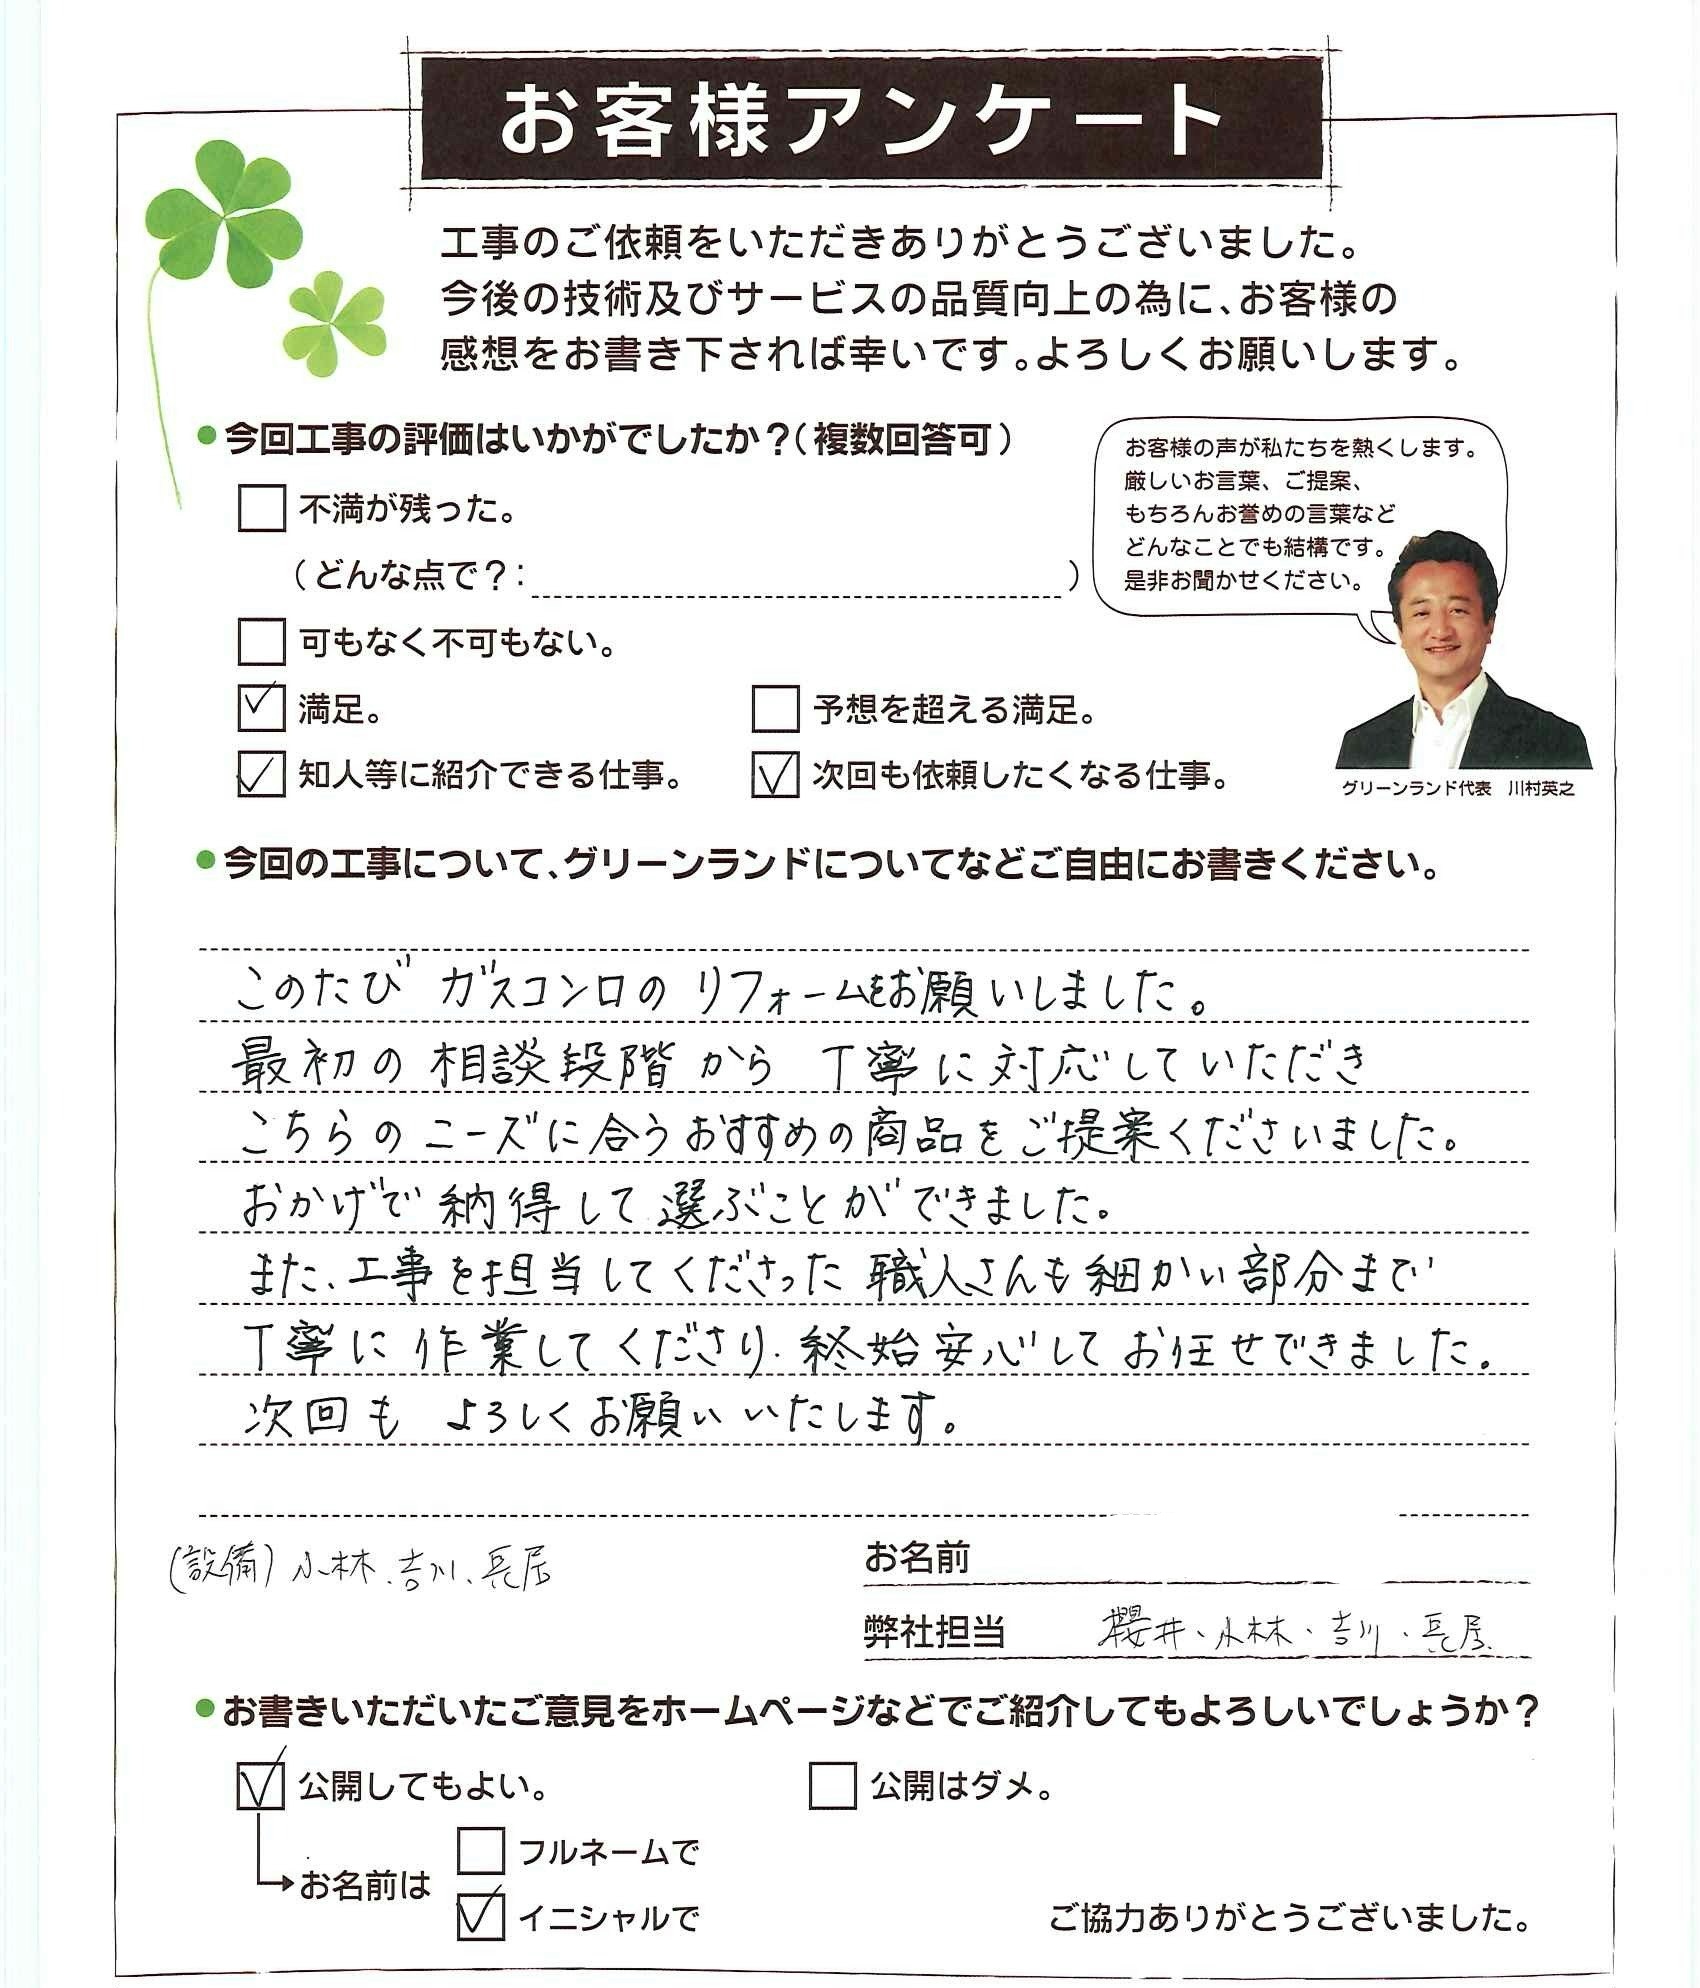 お客様アンケート
工事のご依頼をいただきありがとうございました。
今後の技術及びサービスの品質向上の為に、お客様の
感想をお書き下されば幸いです。よろしくお願いします。
●今回工事の評価はいかがでしたか？(複数回答可)
お客様の声が私たちを熱くします。
厳しいお言葉、ご提案、
もちろんお誉めの言葉など
どんなことでも結構です。
是非お聞かせください。
不満が残った。
(どんな点で？: )
可もなく不可もない。
満足。
予想を超える満足。
知人等に紹介できる仕事。
次回も依頼したくなる仕事。
グリーンランド代表 川村英之
●今回の工事について、グリーンランドについてなどご自由にお書きください。
このたび ガスコンロの リフォームをお願いしました。
最初の 相談段階から 丁寧に対応していただき
こちらの ニーズに合うおすすめの商品をご提案くださいました。
おかげで 納得して選ぶことができました。
また、工事を担当してくださった 職人さんも細かい部分まで
丁寧に作業してくださり、終始安心してお任せできました。
次回も よろしくお願いいたします。
(設備) 小林、吉川、長居
お名前
弊社担当 櫻井、小林、吉川、長居
●お書きいただいたご意見をホームページなどでご紹介してもよろしいでしょうか？
公開してもよい。
公開はダメ。
お名前は
フルネームで
イニシャルで
ご協力ありがとうございました。